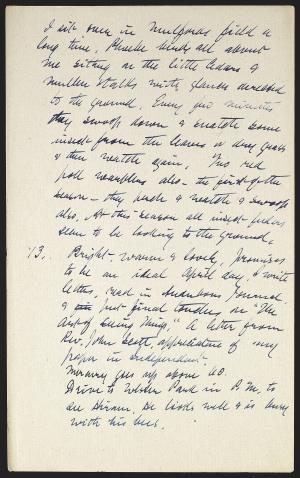 I sit over in Mulfords field a
long time. Phoebe birds all about
me sitting on the little cedars &
mullen stalks with glance directed
to the ground. Every few minutes
they swoop down & snatch some
insect from the leaves or dry grass
& then watch again. Two red
poll warblers also - the first of the
season - they pack & watch & swoop
also. At this season all insect-feeders
seem to be looking to the ground.
13. Bright - warm & lovely, promises
to be an ideal April day. I write
letters, read in Journal
& put final touches on "The
Art of Seeing Things." A letter from
Rev. John Scott, appreciative of my
paper in Independent.
Mercury goes up above 60.
Drive to Weber Pond in P.M. to
see Hiram. He looks well & is busy
with his bees.